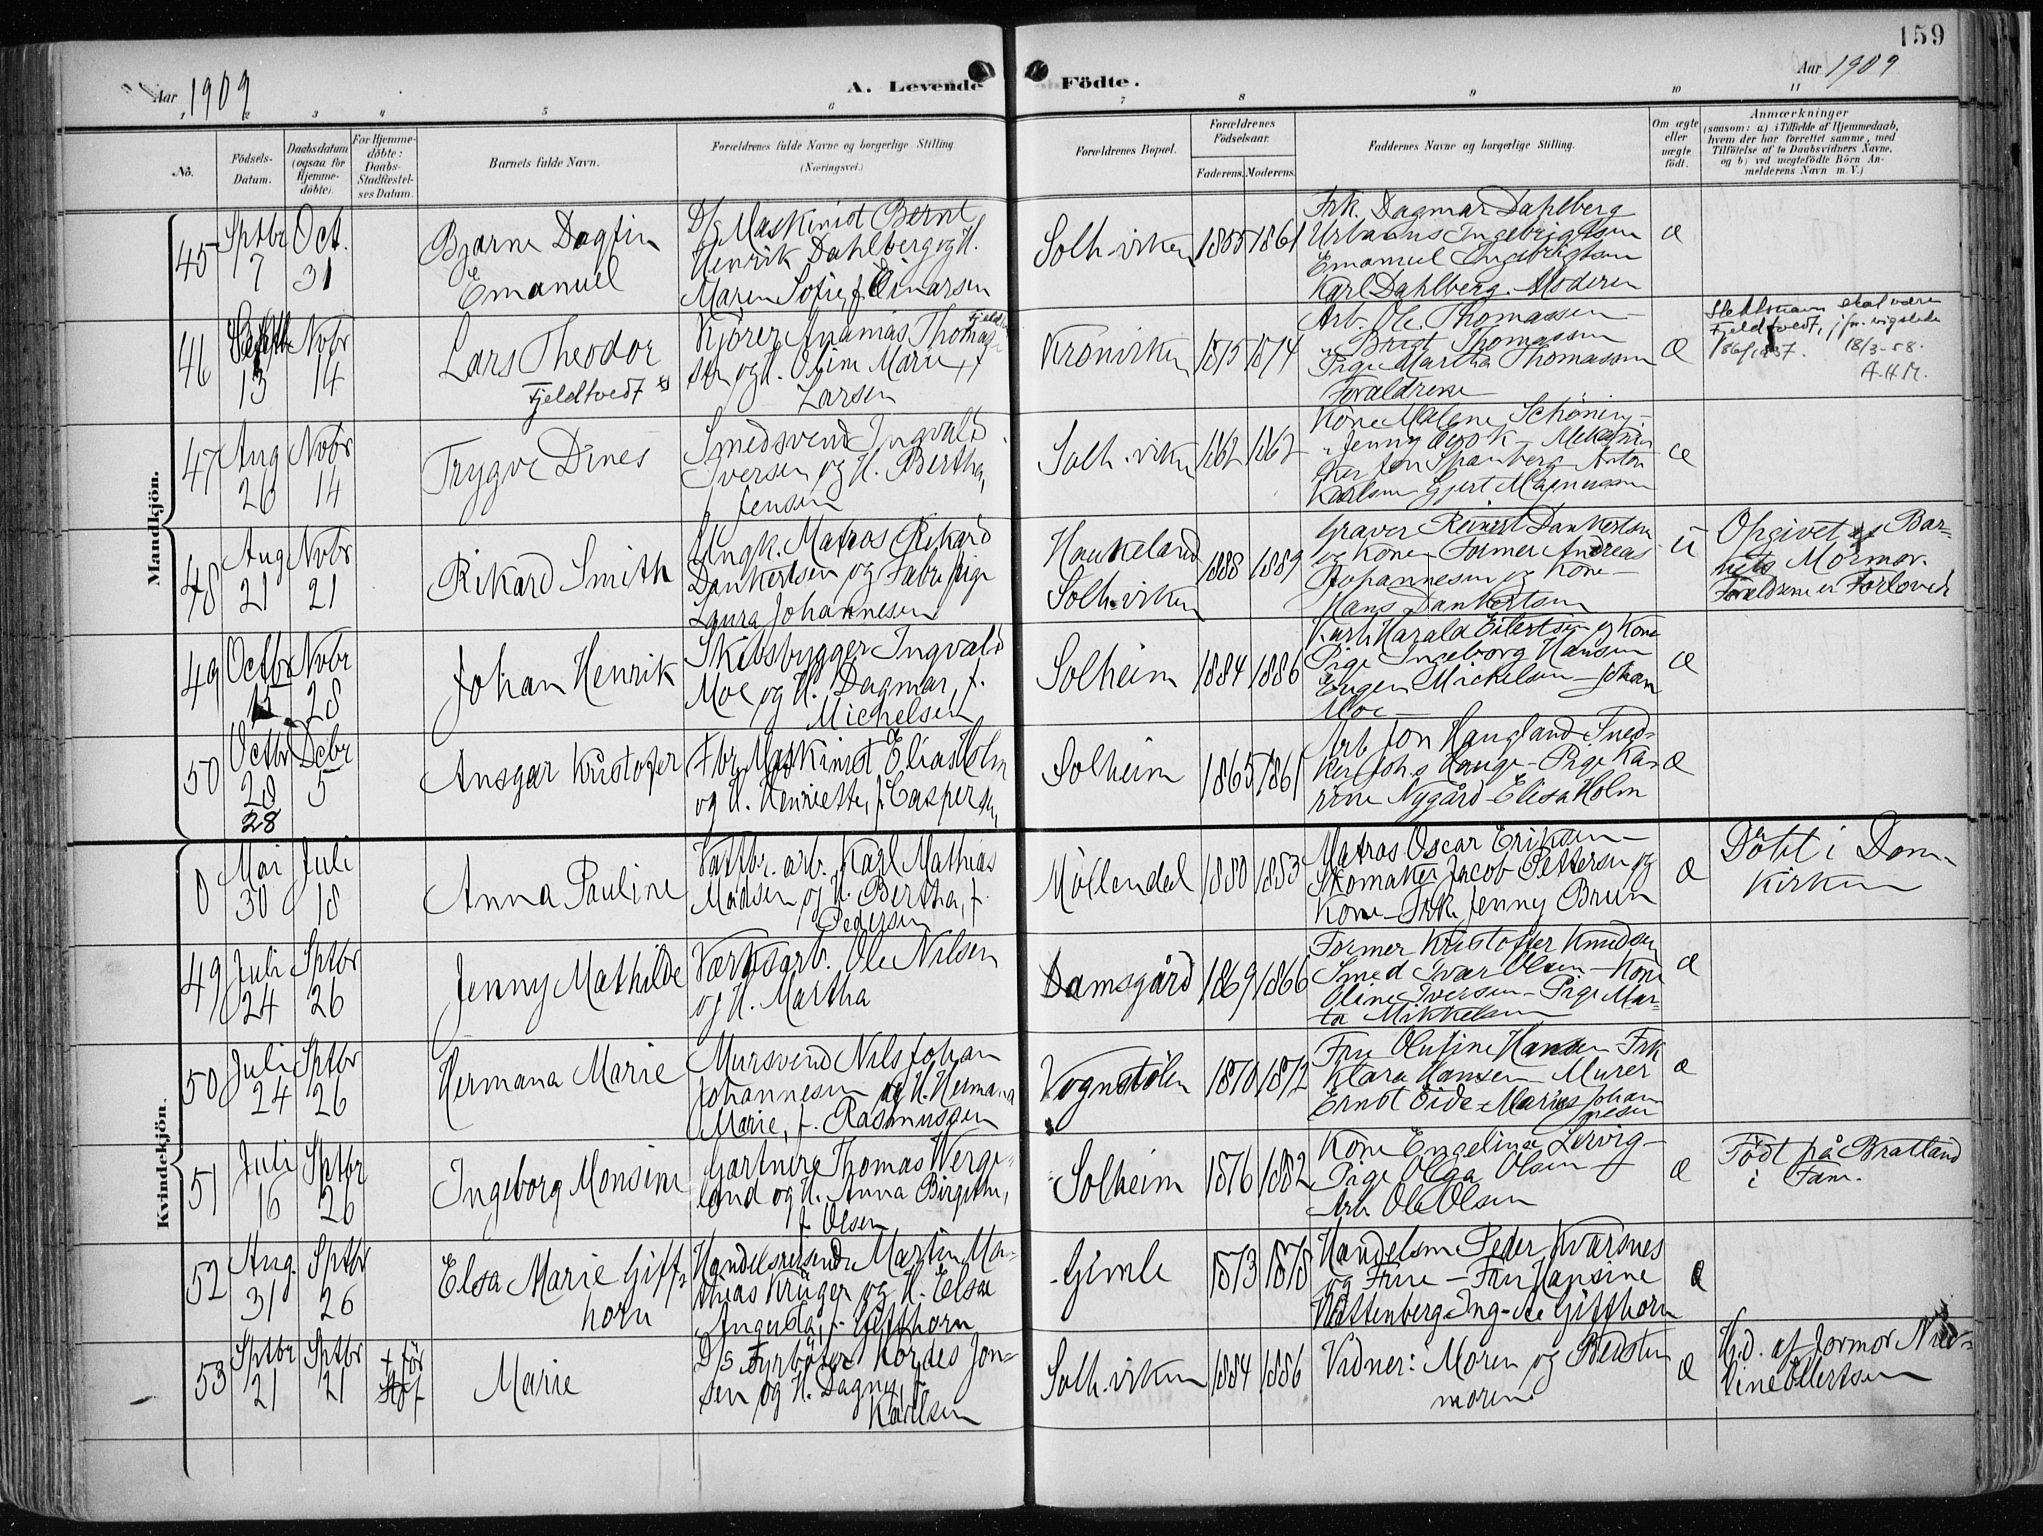 159
Aar 1909
A. Levende Födte.
Aar 1909
1 2 3 4 5 6 7 8 9 10 11
No.
Födsels-Datum.
Daabsdatum (ogsaa for Hjemme-döbte).
For Hjemme-döbte: Daabs-Stadfæstel-ses Datum.
Barnets fulde Navn.
Forældrenes fulde Navne og borgerlige Stilling (Næringsvei.)
Forældrenes Bopæl.
Forældrenes Födselsaar.
Faderens. Moderens.
Faddernes Navne og borgerlige Stilling.
Om ægte eller uægte födt.
Anmærkninger
(saasom: a) i Tilfælde af Hjemmedaab,
hvem der har forrettet samme, med
Tilföielse af to Daabsvidners Navne,
og b) ved uægtefödte Börn An-
melderens Navn m. V.)
Mandkjön.
45
Sptbr 7
Oct. 31
Bjarne Dagfin
Emanuel
D/s Maskinist Bernt
Henrik Dahlberg og H.
Maren Sofie, f. Einarsen
Solh.viken
1855 1861
Frk. Dagmar Dahlberg
Urbanus Ingebrigtsen
Emanuel Ingebrigtsen
Karl Dahlberg. Moderen
æ
46
13
Novbr 14
Lars Theodor
Fjeldtvedt
Kjörer Ananias Thomas-
sen og H. Oline Marie, f.
Larsen
Kronviken
1875 1874
Arb. Ole Thomassen
" Brigt Thomassen
Pige Martha Thomassen
Forældrene
æ
Slektsnavn skal være
Fjeldtvedt, jfr. vigslede
18/3-58.
A.H.M.
47
Aug 26
Novbr 14
Trygve Dines
Smedsvend Ingvald
Iversen og H. Bertha,
f. Jensen
Solh.viken
1862 1862
Kone Malene Schöning
Karlsen Gjert Magnussen
æ
48
Aug 21
Novbr 21
Rikard Smith
Ungk. Matros Rikard
Dankertsen og Fabrikpige
Laura Johannesen
Haukeland
Solh.viken
1888 1889
Graver Reinert Dankertsen
og Kone Former Andreas
Johannesen og Kone
Hans Dankertsen
u
Opgivet af Bar-
nets Mormor.
Forældrene er Forlovede
49
Octbr
Novbr 28
Johan Henrik
Skibsbygger Ingvald
Moe og H. Dagmar, f.
Michelsen
Solheim
1884 1886
Harald Eilertsen og Kone
Pige Ingeborg Hansen
Eugen Mickelsen Johan
Moe
æ
50
Octbr 28
28
Decbr 5
Ansgar Kristofer
Fbr. Maskinist Elias Holm
og H. Henriette, f. Caspersen,
Solheim
1865 1861
Arb. Jon Haugland Sned-
ker Johs Hauge - Pige Kar
rine Nygård - Elisa Holm
æ
Kvindekjön.
0
Mai 30
Juli 18
Anna Pauline
Karl Mathias
Madsen og H. Bertha, f.
Pedersen
Möllendal
1880 1883
Matros Oscar Eriksen -
Skomaker Jacob Pettersen og
Kone - Frk. Jenny Brun
æ
Döbt i Dom-
kirken
49
Juli 24
Sptbr 26
Jenny Mathilde
Værksarb. Ole Nilsen
og H. Martha
Damsgård
1869 1866
Former Kristoffer Knudsen
Smed Ivar Olsen - Kone
Oline Iversen - Pige Mar-
ta Mikkelsen
æ
50
Juli 24
Sptbr 26
Hermana Marie
Mursvend Nils Johan
Johannesen og H. Hermana
Marie, f. Rasmussen
Vognstölen
1870 1872
Fru Olufine Hansen - Frk
Klara Hansen - Murer
Ernst Eide - Marius Johan
nesen
æ
51
Juli 16
Sptbr 26
Ingeborg Monsine
Gartner Thomas Werge-
land og H. Anna Birgitte,
f. Olsen
Solheim
1876 1882
Kone Engelina Lervig -
Pige Olga Olsen -
Arb. Ole Olsen
æ
Födt på Bratland
i Fam.
52
Aug. 31
Sptbr 26
Elsa Marie Giff-
horn
Handelsreisende Martin Ma-
thias Krüger og H. Elsa
Augusta, f. Giffhorn
Gimle
1873 1878
Handelsm. Peder Kvarsnes
og Frue - Fru Hansine
Wattenberg - Giffhorn
æ
53
Sptbr 21
Sptbr 21
+ för
Marie
D/s Fyrböter Kordes Jon-
sen og H. Dagny, f.
Karlsen
Solh.viken
1884 1886
Vidner: Moren og Bedste-
moren
æ
Hjd. af Jormor
Ellertsen